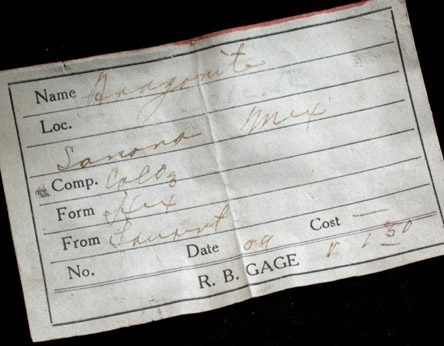 Name Aragonite
Loc.
Sonora Mex
Comp. CaCO3
Form Hex
From
No. Date 09 Cost —
R. B. GAGE v 1 50